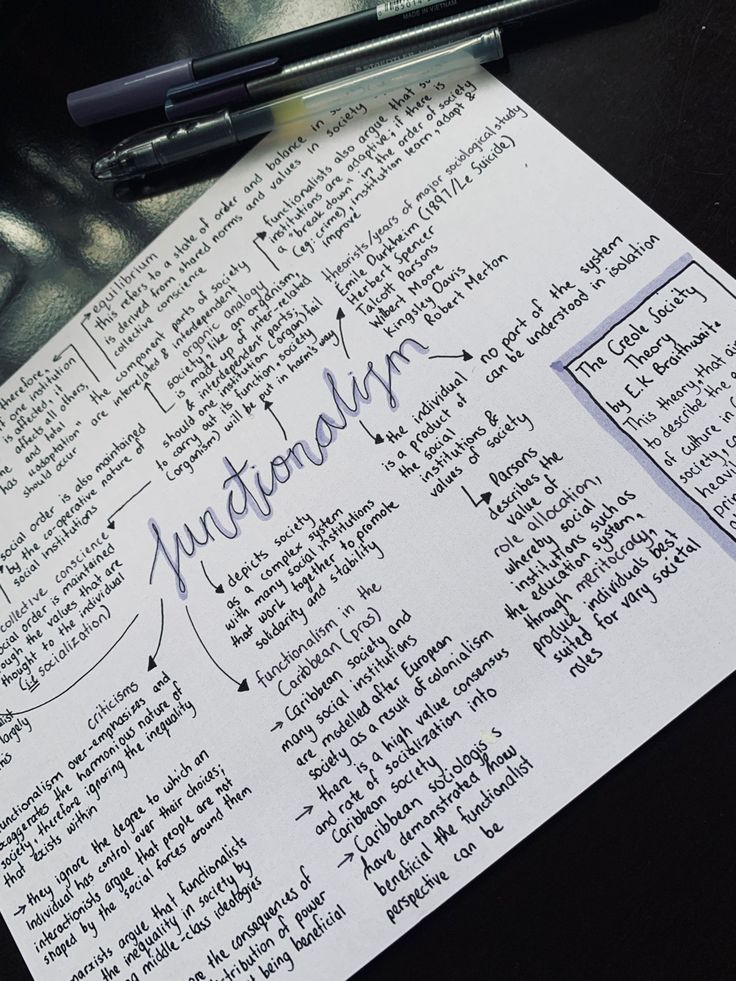 MADE IN VIETNAM
equilibrium
this refers to a state of order and balance in
is derived from shared norms and values in society
collective conscience
functionalists also argue that
institutions are adaptive; if there is
a "break down" in the order of society
(eg: crime), institution learn, adapt &
improve
theorists/years of major sociological study
Emile Durkheim (1897/Le Suicide)
Herbert Spencer
Talcott Parsons
Wilbert Moore
Kingsley Davis
Robert Merton
no part of the system
can be understood in isolation
The Creole Society
Theory
by E.K Braithwaite
This theory, that
to describe the
of culture in
society,
heavil
prin
therefore,
if one institution
is affected, it
affects all others,
and total
"adaptation"
should occur
the component parts of society
are interrelated & interdependent
organic analogy
society, like an organism,
is made up of inter-related
& interdependent parts.
should one institution (organ) fail
to carry out its function, society
(organism) will be put in harm's way
functionalism
the individual
is a product of
the social
institutions &
values of society
Parsons
describes the
value of
role allocation,
whereby social
institutions such as
the education system,
through meritocracy,
produce individuals best
suited for vary societal
roles
social order is also maintained
by the co-operative nature of
social institutions
collective conscience
social order is maintained
through the values that are
thought to the individual
(id socialization)
depicts society
as a complex system
with many social institutions
that work together to promote
solidarity and stability
functionalism in the
Caribbean (pros)
→ Caribbean society and
many social institutions
are modelled after European
society as a result of colonialism
→ there is a high value consensus
and rate of socialization into
Caribbean society
→ Caribbean sociologists
have demonstrated how
beneficial the functionalist
perspective can be
largely
criticisms
functionalism over-emphasizes and
exaggerates the harmonious nature of
society, therefore ignoring the inequality
that exists within
→ they ignore the degree to which an
individual has control over their choices;
interactionists argue that people are not
shaped by the social forces around them
marxists argue that functionalists
the inequality in society by
middle-class ideologies
are the consequences of
distribution of power
being beneficial